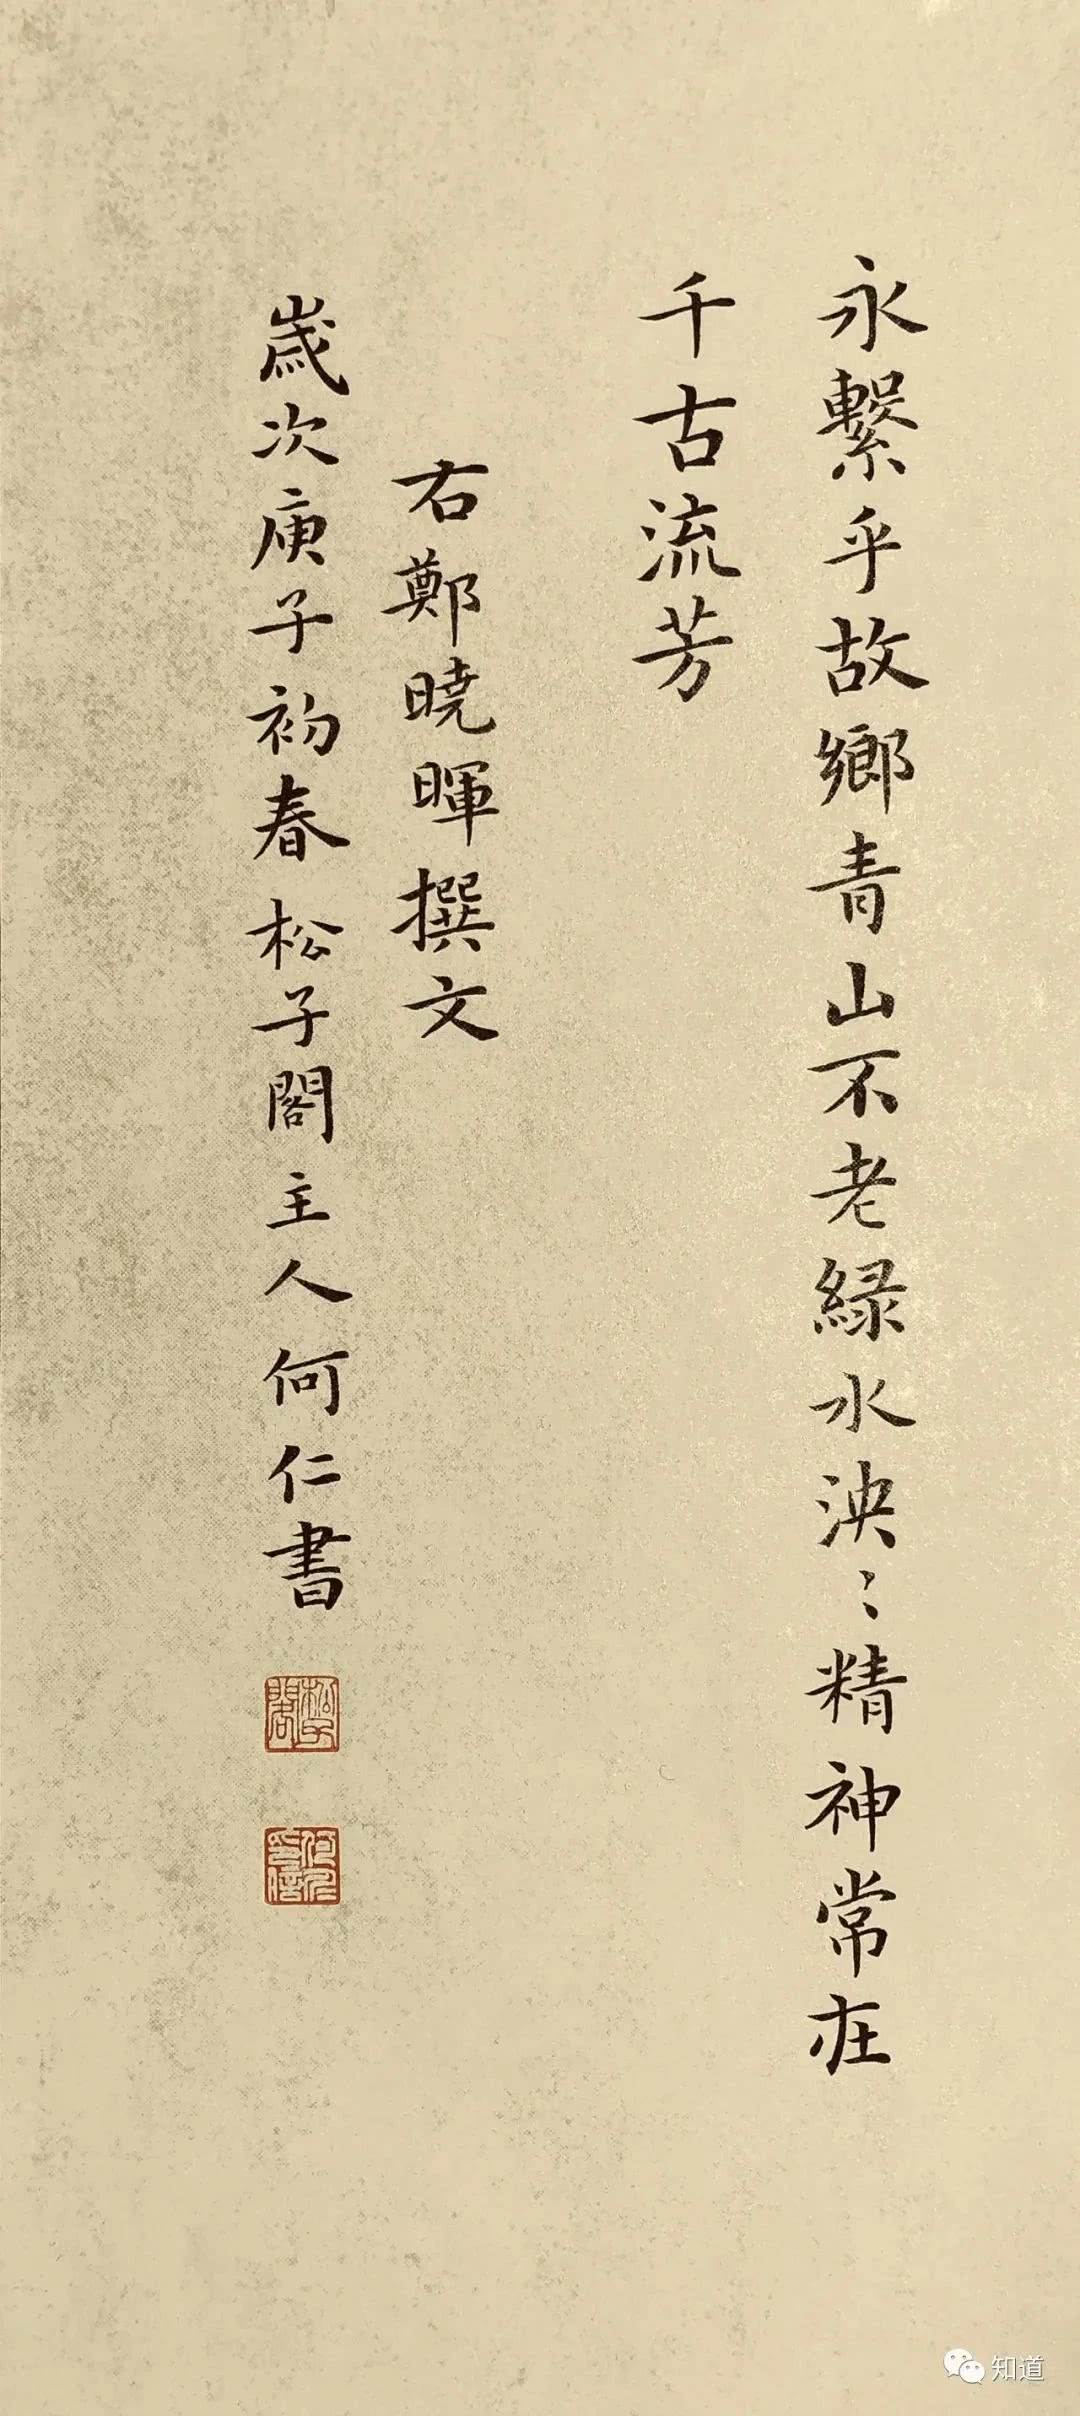 永繫乎故鄉青山不老緑水泱〻精神常在
千古流芳
右鄭曉暉撰文
歲次庚子初春松子閣主人何仁書
松子閣
何仁印信
知道